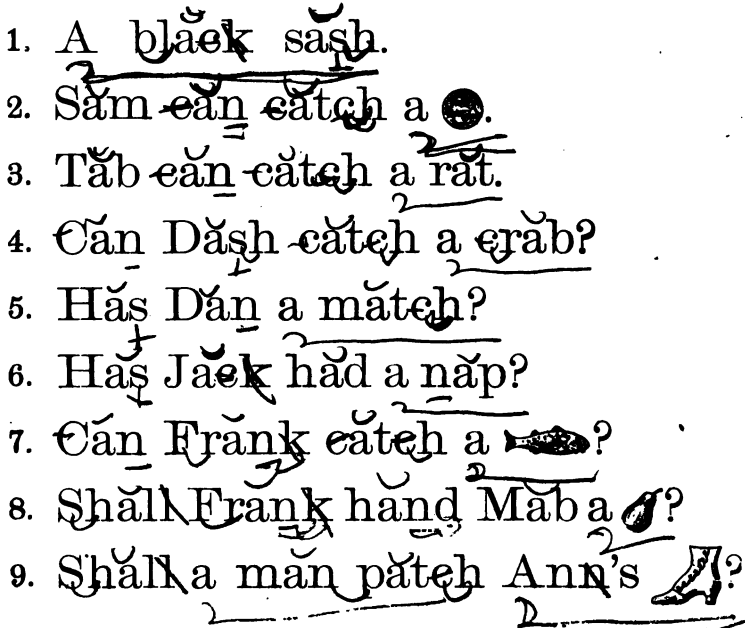 1. A blăck săsh.
2. Săm căn cătch a .
3. Tăb căn cătch a răt.
4. Căn Dăsh cătch a crăb?
5. Hăs Dăn a mătch?
6. Hăs Jăck hăd a năp?
7. Căn Frănk cătch a ?
8. Shăll Frănk hănd Măb a ?
9. Shăll a măn pătch Ann's ?